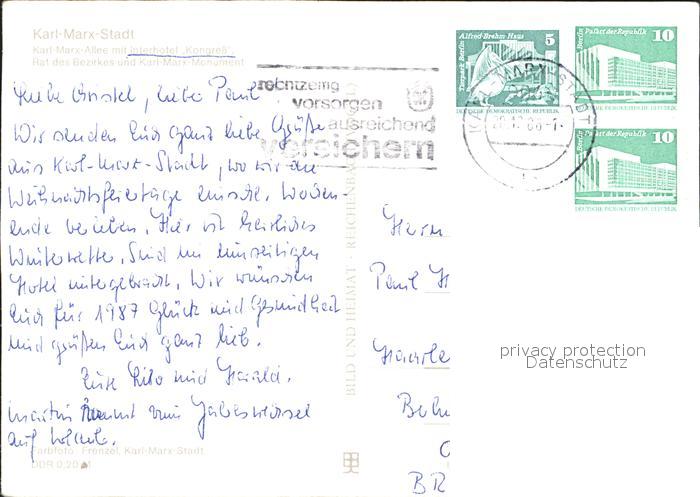 Karl-Marx-Stadt
Karl-Marx-Allee mit Interhotel „Kongreß",
Rat des Bezirkes und Karl-Marx-Monument
Liebe Christel, lieber Paul
Wir senden Euch ganz liebe Grüße
aus Karl-Marx-Stadt, wo wir die
Weihnachtsfeiertage einschl. Wochen-
ende verleben. Hier ist herrliches
Winterwetter. Sind im hiesigen
Hotel untergebracht. Wir wünschen
Euch für 1987 Glück und Gesundheit
und grüßen Euch ganz lieb.
Eure Rita und Harald.
Martin kommt zum Jahreswechsel
auf
Farbfoto: Frenzel, Karl-Marx-Stadt
DDR 0,20 M
BILD UND HEIMAT · REICHENB
rechtzeitig
vorsorgen
ausreichend
versichern
Alfred-Brehm-Haus 5
Tierpark Berlin
DEUTSCHE DEMOKRATISCHE REPUBLIK
Berlin Palast der Republik 10
DEUTSCHE DEMOKRATISCHE REPUBLIK
Berlin Palast der Republik 10
DEUTSCHE DEMOKRATISCHE REPUBLIK
KARL-MARX-STADT
Herrn
Paul H
BR
privacy protection
Datenschutz